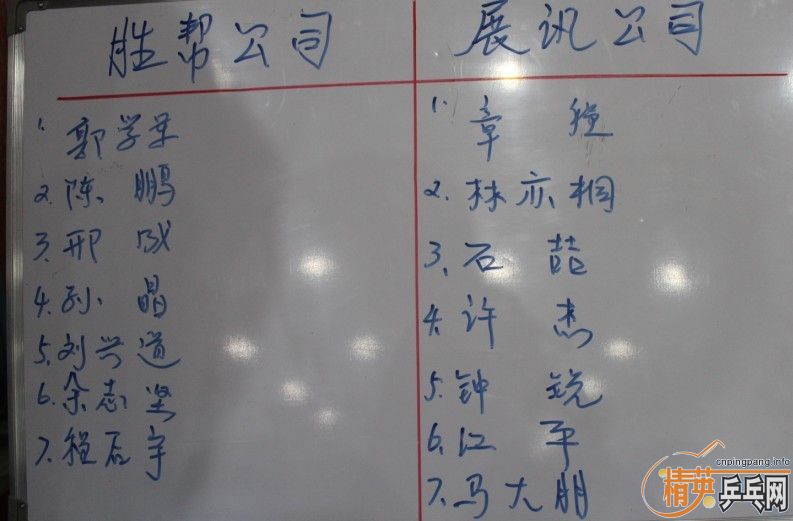 胜帮公司
展讯公司
1. 郭学荣
2. 陈 鹏
3. 邢 成
4. 孙 晶
5. 刘兴道
6. 余志坚
7. 程石宇
1. 章 程
2. 林亦桐
3. 石 喆
4. 许 杰
5. 钟 锐
6. 江 平
7. 马大朋
cnpingpang.info
精英乒乓网